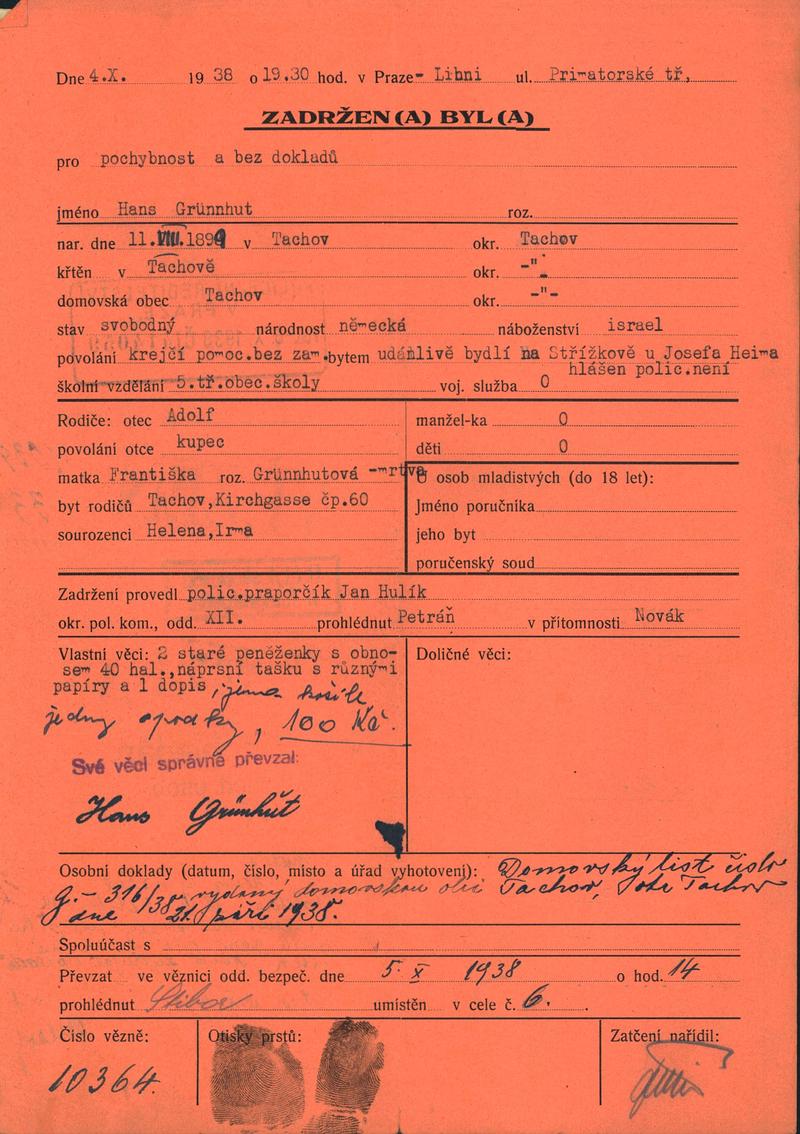 Dne 4.X. 19 38 o 19.30 hod. v Praze - Libni ul. Primatorské tř,
ZADRŽEN(A) BYL(A)
pro pochybnost a bez dokladů
jméno Hans Grünnhut roz.
nar. dne 11.VIII.1899 v Tachov okr. Tachov
křtěn v Tachově okr. -"-
domovská obec Tachov okr. -"-
stav svobodný národnost německá náboženství israel
povolání krejčí pomoc.bez zam. bytem udánlivě bydlí na Střížkově u Josefa Heima
hlášen polic.není
školní vzdělání 5.tř.obec.školy voj. služba 0
Rodiče: otec Adolf manžel-ka 0
povolání otce kupec děti 0
matka Františka roz. Grünnhutová -mrtva U osob mladistvých (do 18 let):
byt rodičů Tachov,Kirchgasse čp.60 Jméno poručníka
sourozenci Helena,Irma jeho byt
poručenský soud
Zadržení provedl polic.praporčík Jan Hulík
okr. pol. kom., odd. XII. prohlédnut Petráň v přítomnosti Novák
Vlastní věci: 2 staré peněženky s obno- Doličné věci:
sem 40 hal.,náprsní tašku s různými
papíry a 1 dopis, košile
jedny spodky, 100 Kč.
Své věci správně převzal:
Hans Grünhut
Osobní doklady (datum, číslo, místo a úřad vyhotovení): Domovský list číslo
g. - 316/38 vydaný domovskou obcí Tachov, Tachov
dne 21. září 1938.
Spoluúčast s
Převzat ve věznici odd. bezpeč. dne 5. X 1938 o hod. 14
prohlédnut Stibor umístěn v cele č. 6.
Číslo vězně: Otisky prstů: Zatčení nařídil:
10364.